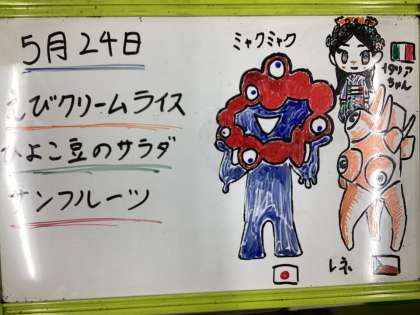 5月24日
えびクリームライス
ひよこ豆のサラダ
サンフルーツ
ミャクミャク
イタリアちゃん
レネ